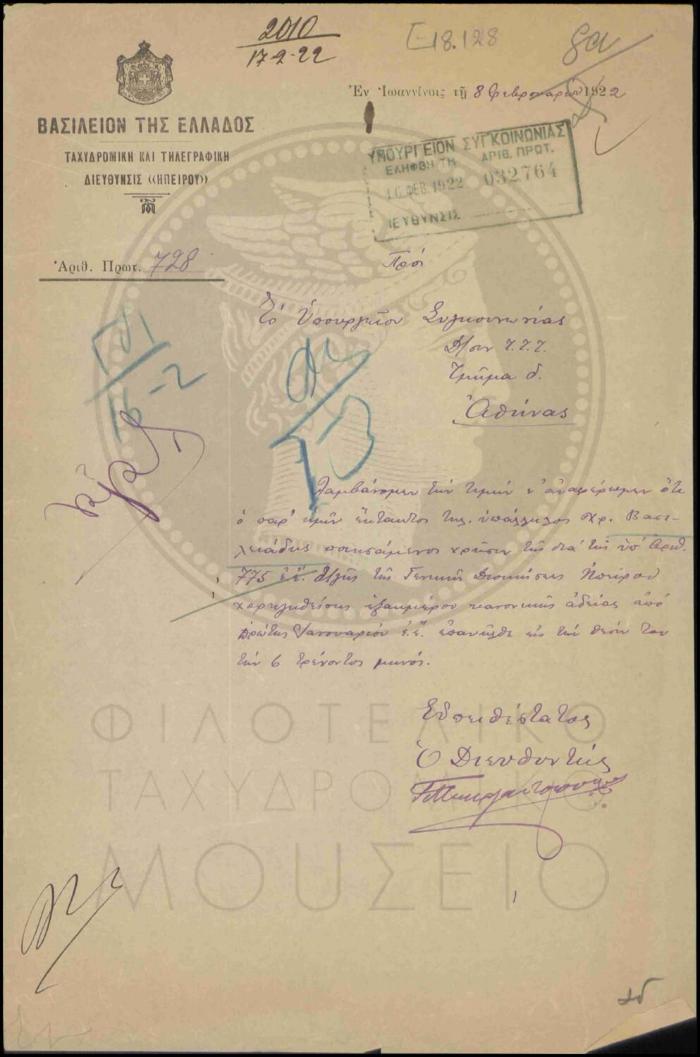 2010
17-2-22
Γ-18.128
Ἐν Ἰωαννίνοις τῇ 8 Φεβρουαρίου 1922
ΒΑΣΙΛΕΙΟΝ ΤΗΣ ΕΛΛΑΔΟΣ
ΤΑΧΥΔΡΟΜΙΚΗ ΚΑΙ ΤΗΛΕΓΡΑΦΙΚΗ
ΔΙΕΥΘΥΝΣΙΣ «ΗΠΕΙΡΟΥ»
ΥΠΟΥΡΓΕΙΟΝ ΣΥΓΚΟΙΝΩΝΙΑΣ
ΕΛΗΦΘΗ ΤΗ ΑΡΙΘ. ΠΡΩΤ.
16 ΦΕΒ. 1922 032764
ΔΙΕΥΘΥΝΣΙΣ
Ἀριθ. Πρωτ. 728
Πρὸς
Τὸ Ὑπουργεῖον Συγκοινωνίας
Δ/σιν Τ.Τ.Τ.
Τμῆμα δ.
Ἀθήνας
Λαμβάνομεν τὴν τιμὴν ν' ἀναφέρωμεν ὅτι
ὁ παρ' ἡμῖν ἔκτακτος τηλ. ὑπάλληλος Χρ. Βασι-
λειάδης ποιησάμενος χρῆσιν τῆς διὰ τῆς ὑπ' ἀριθ.
775 ἐ.ἔ. δ/γῆς τῆς Γενικῆς Διοικήσεως Ἠπείρου
χορηγηθείσης ἑξαημέρου κανονικῆς ἀδείας ἀπὸ
πρώτης Ἰανουαρίου ἐ.ἔ. ἐπανῆλθε εἰς τὴν θέσιν του
τὴν 6 τρέχοντος μηνός.
Εὐπειθέστατος
Ὁ Διευθυντής
ΦΙΛΟΤΕΛΙΚΟ
ΤΑΧΥΔΡΟΜΙΚΟ
ΜΟΥΣΕΙΟ